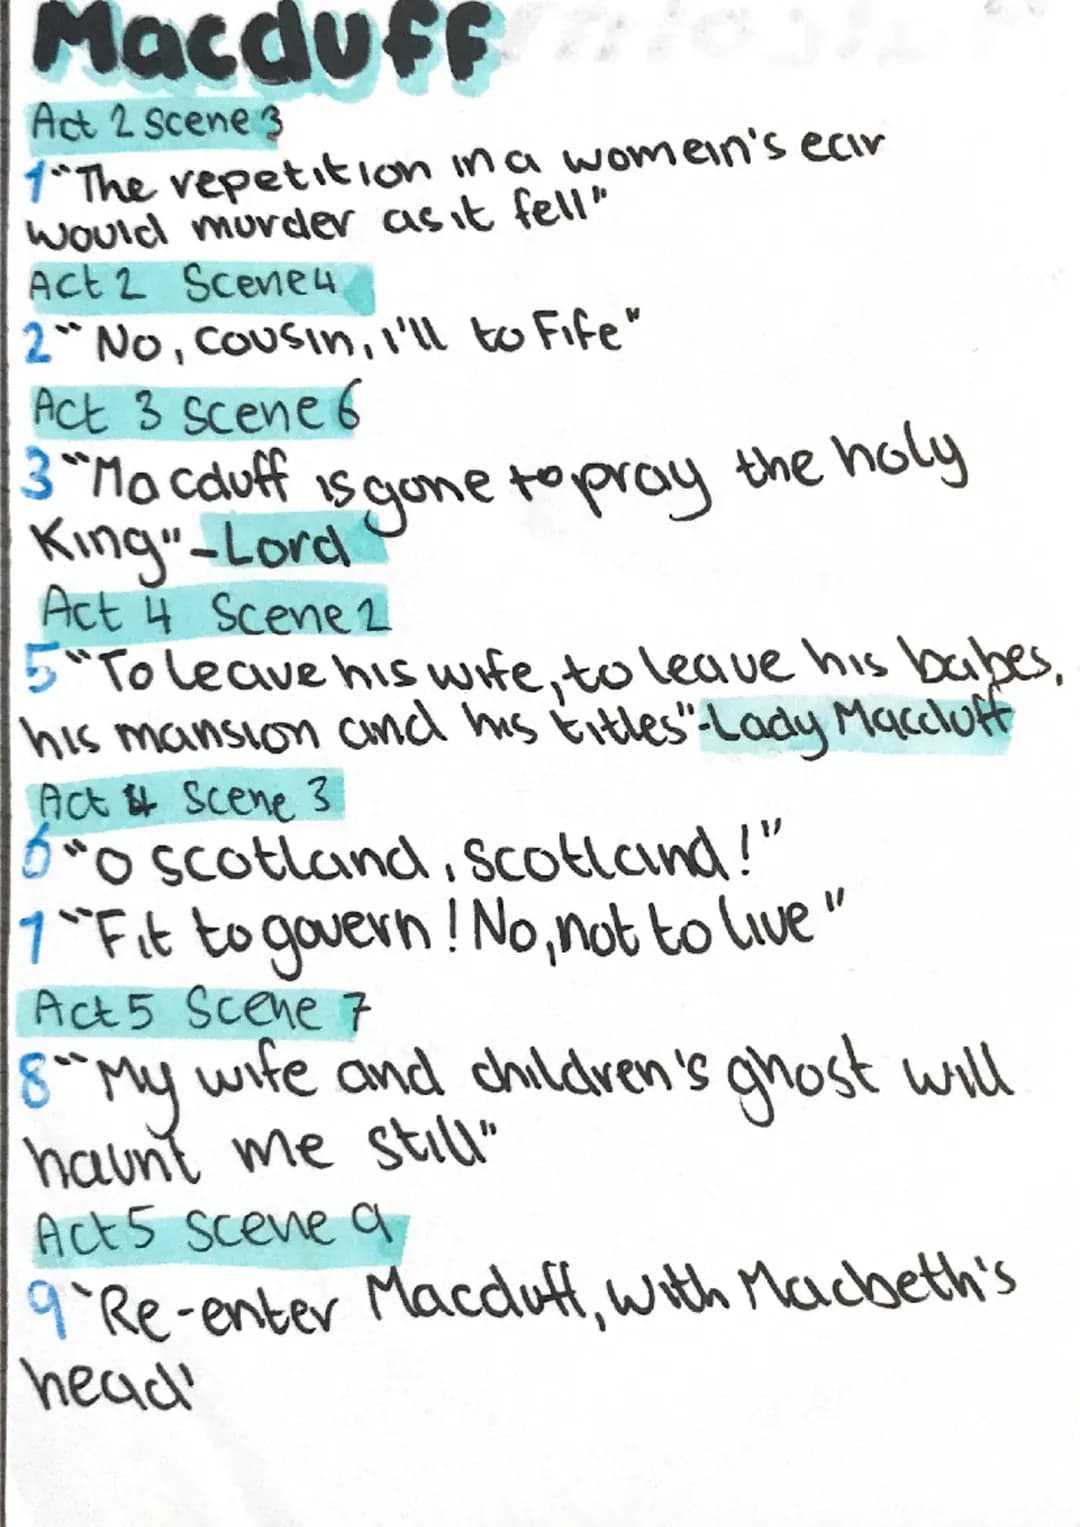 Macduff
Act 2 Scene 3
1 "The repetition in a women's ear
would murder as it fell"
Act 2 Scene 4
2 "No, cousin, i'll to Fife"
Act 3 scene 6
3 "Macduff is gone to pray the holy
King" - Lord
Act 4 Scene 2
5 "To leave his wife, to leave his babes,
his mansion and his titles" - Lady Macduff
Act 4 Scene 3
6 "O scotland, Scotland!"
7 "Fit to govern! No, not to live"
Act 5 Scene 7
8 "My wife and children's ghost will
haunt me still"
Act 5 Scene 9
9 'Re-enter Macduff, with Macbeth's
head'